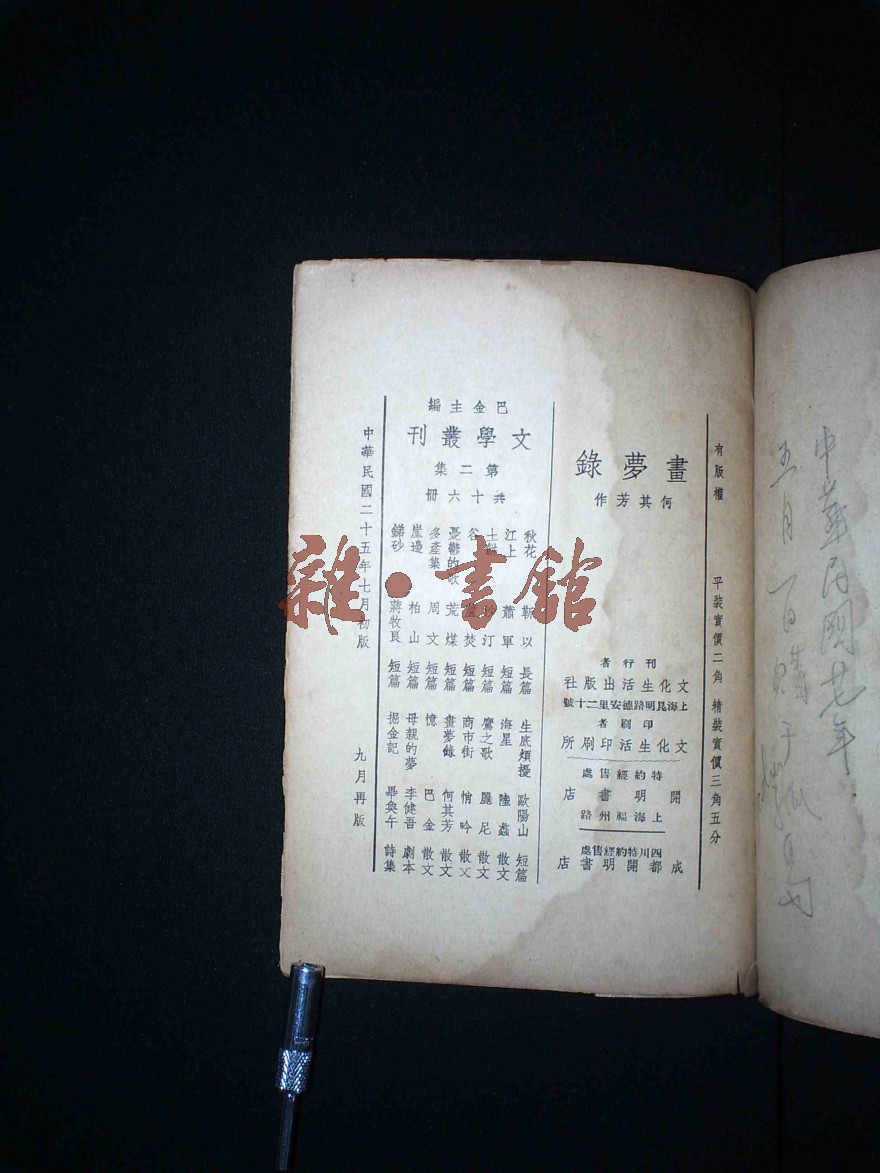 中華民國
五月一日購于
有版權 平裝實價二角 精裝實價三角五分
畫夢錄
何其芳作
刊行者
文化生活出版社
上海昆明路德安里二十號
印刷者
文化生活印刷所
特約經售處
開明書店
上海福州路
四川特約經售處
成都開明書店
巴金主編
文學叢刊
第二集
共十六冊
秋花 靳以 長篇 生底煩擾 歐陽山 短篇
江上 蕭軍 短篇 海星 陸蠡 散文
土餅 沙汀 短篇 鷹之歌 麗尼 散文
谷 蘆焚 短篇 商市街 悄吟 散文
憂鬱的歌 荒煤 短篇 畫夢錄 何其芳 散文
多產集 周文 短篇 憶 巴金 散文
崖邊 柏山 短篇 母親的夢 李健吾 劇本
銻砂 蔣牧良 短篇 掘金記 畢奐午 詩集
中華民國二十五年七月初版 九月再版
雜·書館